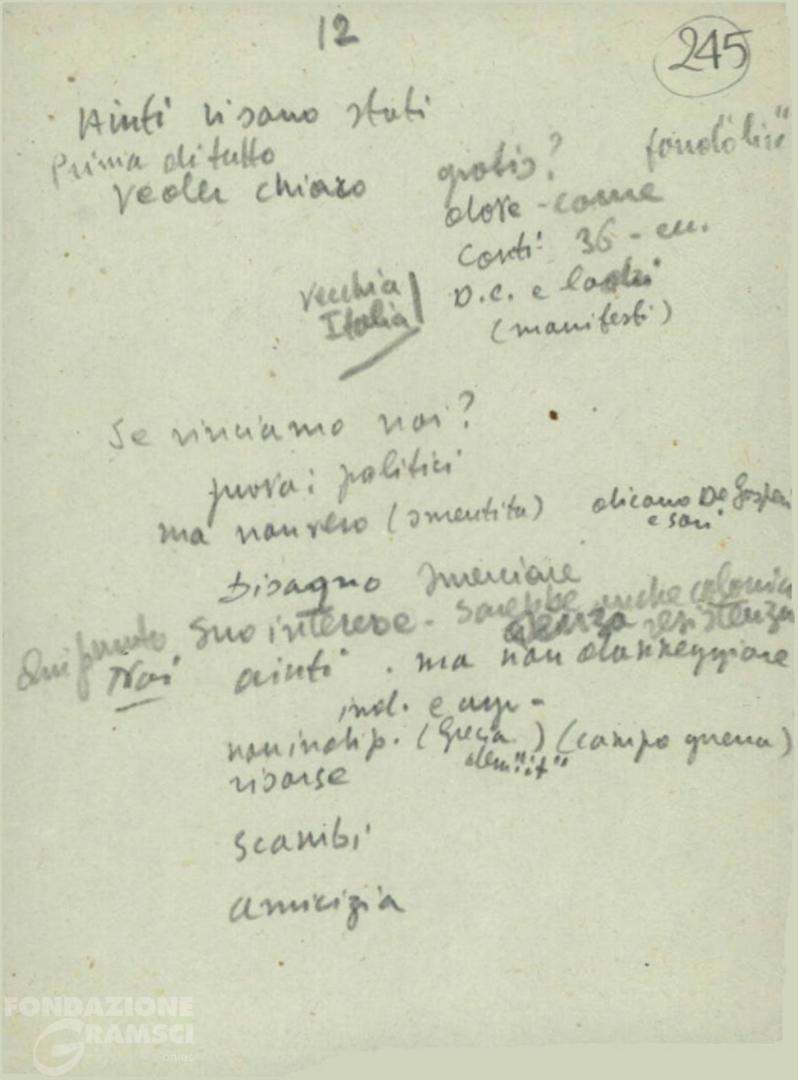 12
245
Aiuti vi sono stati
Prima di tutto
veder chiaro
gratis? fondo "lire"
dove - come
Conti 36 - cu.
D.C. e laohi
(manifesti)
vecchia
Italia
Se vinciamo noi?
prova: politici
ma non vero (smentita) dicano De Gasperi
e soci
Disagno smerciare
Suo interesse - Sarebbe anche colonia
senza resistenza
Qui punto
Noi aiuti . ma non danneggiare
ind. e agr -
non indip. (Grecia) (campo guerra)
risorse
Scambi
amicizia
FONDAZIONE
GRAMSCI
onlus